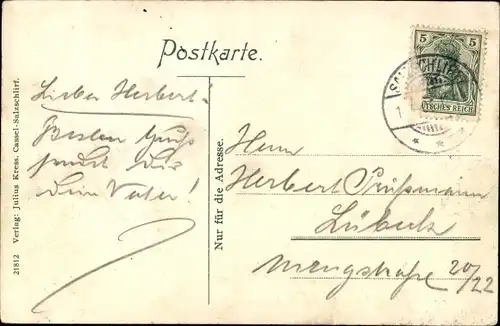 Postkarte.
Lieber Herbert!
Besten Gruß
sendet dir
dein Vater!
Nur für die Adresse.
Herrn
Herbert
Lübeck
Mengstraße 20/22
21812 Verlag: Julius Kress, Cassel-Salzschlirf.
5 5
DEUTSCHES REICH